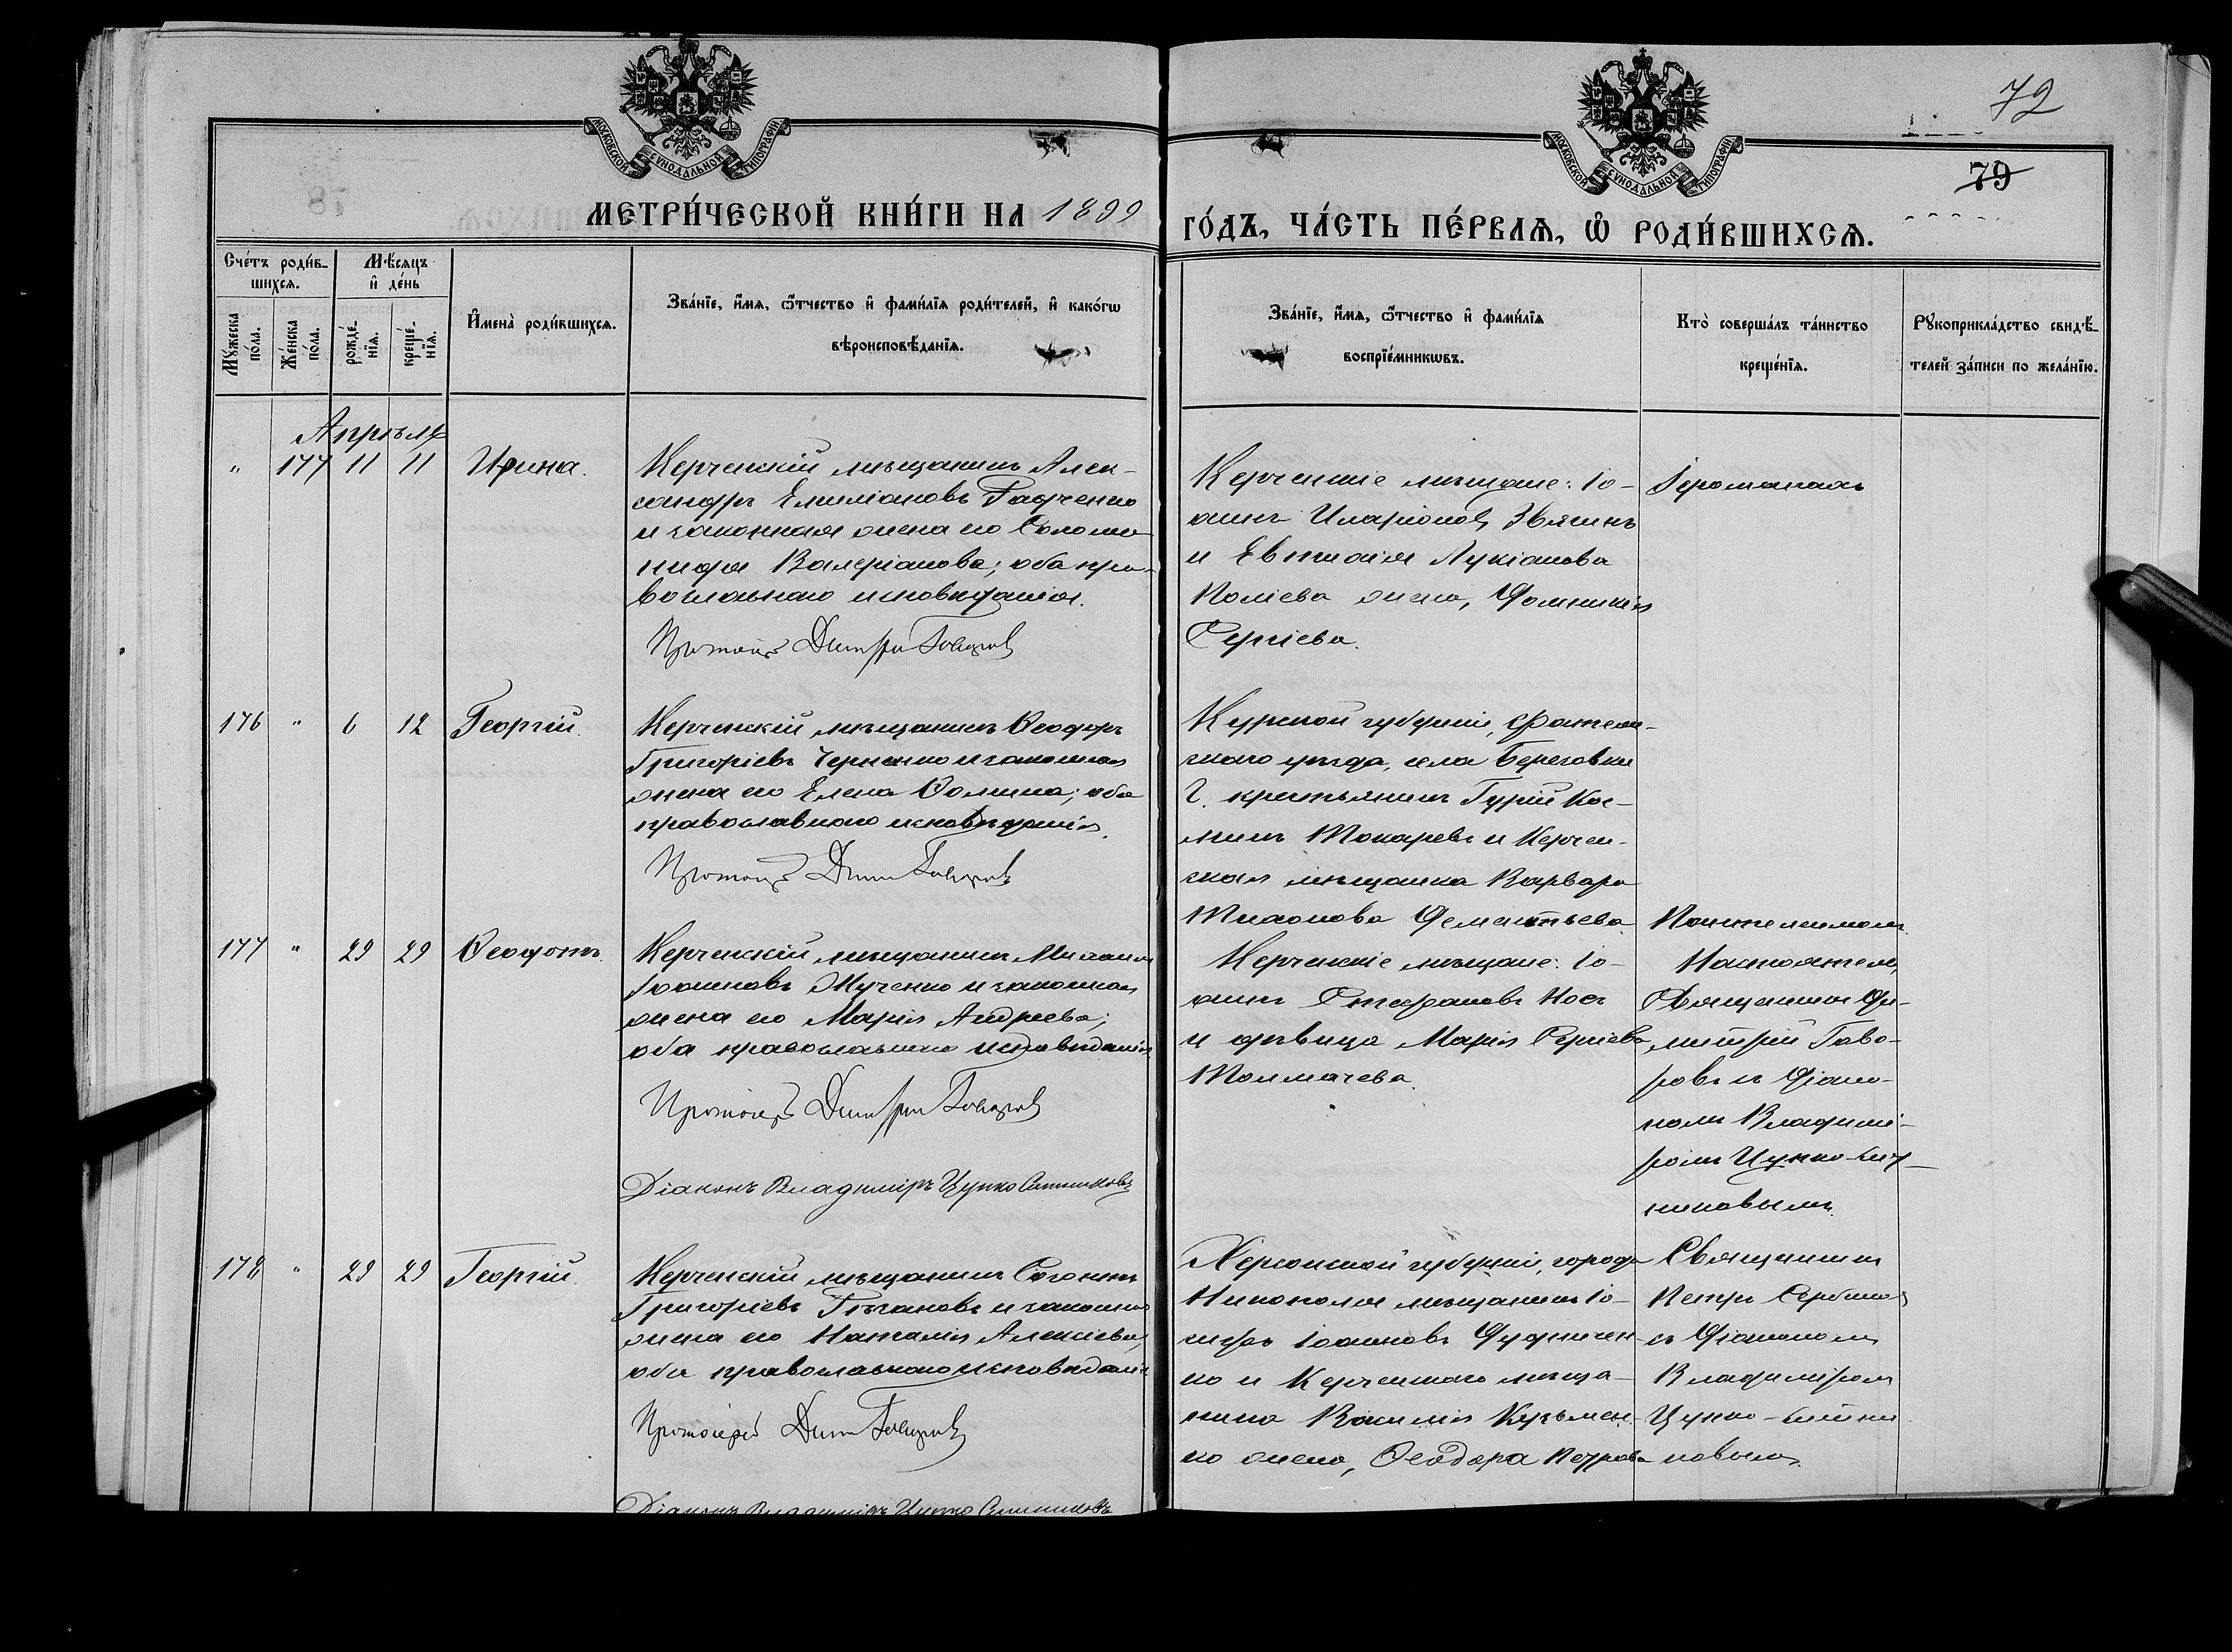 МОСКОВСКОЙ СѴНОДАЛЬНОЙ ТИПОГРАФІИ
МОСКОВСКОЙ СѴНОДАЛЬНОЙ ТИПОГРАФІИ
72
79
МЕТРИ́ЧЕСКОЙ КНИ́ГИ НА 1899
ГО́ДЪ, ЧА́СТЬ ПЕ́РВАѦ, Ѡ҆ РОДИ́ВШИХСѦ.
Сче́тъ роди́в-
шихсѧ.
Мѣ́сѧцъ
и҆ де́нь
Мꙋ́жеска
по́ла.
Же́нска
по́ла.
рожде́-
нїѧ.
креще́-
нїѧ.
И҆мена̀ роди́вшихсѧ.
Зва́нїе, и҆́мѧ, ѻ҆́тчество и҆ фами́лїѧ роди́телей, и҆ како́гѡ
вѣроисповѣ́данїѧ.
Зва́нїе, и҆́мѧ, ѻ҆́тчество и҆ фами́лїѧ
воспрїе́мникѡвъ.
Кто̀ соверша́лъ та́инство
креще́нїѧ.
Рꙋкоприкла́дство свидѣ́-
телей за́писи по жела́нїю.
Апрѣль
" 177 11 11 Ирина.
Керченскій мѣщанинъ Алек-
сандръ Емиліановъ
и законная жена его Соломо-
нида Валеріанова; оба пра-
вославнаго исповѣданія.
Протоіер Димитри Говоров
Керченскіе мѣщане: Іо-
аннъ Иларіонов Звягинъ
и Евтихія Лукіанова
жена, Домникія
Сергіева.
Іеромонахъ
176 " 6 12 Георгій.
Керченскій мѣщанинъ Ѳеодоръ
Григоріевъ Черненко и законная
жена его Елена Ѳомина; оба
православнаго исповѣданія.
Протоіер Дим Говоров
Курской губерніи, Фатеж-
скаго уѣзда, села Береговки
крестьянинъ Гурій Кос-
минъ Токаревъ и Керчен-
ская мѣщанка Варвара
Тихонова Дементьева
Пантелеимонъ
177 " 29 29 Ѳеодотъ.
Керченскій мѣщанинъ Михаилъ
Іоанновъ Жученко и законная
жена его Марія Андреева;
оба православнаго исповѣданія
Протоіер Димитри Говоров
Діаконъ Владиміръ Цупко Ситниковъ
Керченскіе мѣщане: Іо-
аннъ Стефановъ Носъ
и дѣвица Марія Сергіева
Толмачева.
Настоятель,
Священникъ Ди-
митрій Гово-
ровъ съ Діако-
номъ Владимі-
ромъ Цупко-Сит-
никовымъ.
178 " 29 29 Георгій.
Керченскій мѣщанинъ Созонтъ
Григоріевъ и законная
жена его Наталія Алексіева,
оба православнаго исповѣданія
Протоіерей Дим Говоров
Діаконъ Владиміръ Цупко Ситниковъ
Херсонской губерніи, города
Никополя мѣщанинъ Іо-
сифъ Іоанновъ Дудничен-
ко и Керченскаго мѣща-
нина Василія Кузьмен-
ко жена, Ѳеодора Петрова
Священникъ
Петръ Сербинов
съ Діакономъ
Владиміромъ
Цупко-Ситни
ковымъ.